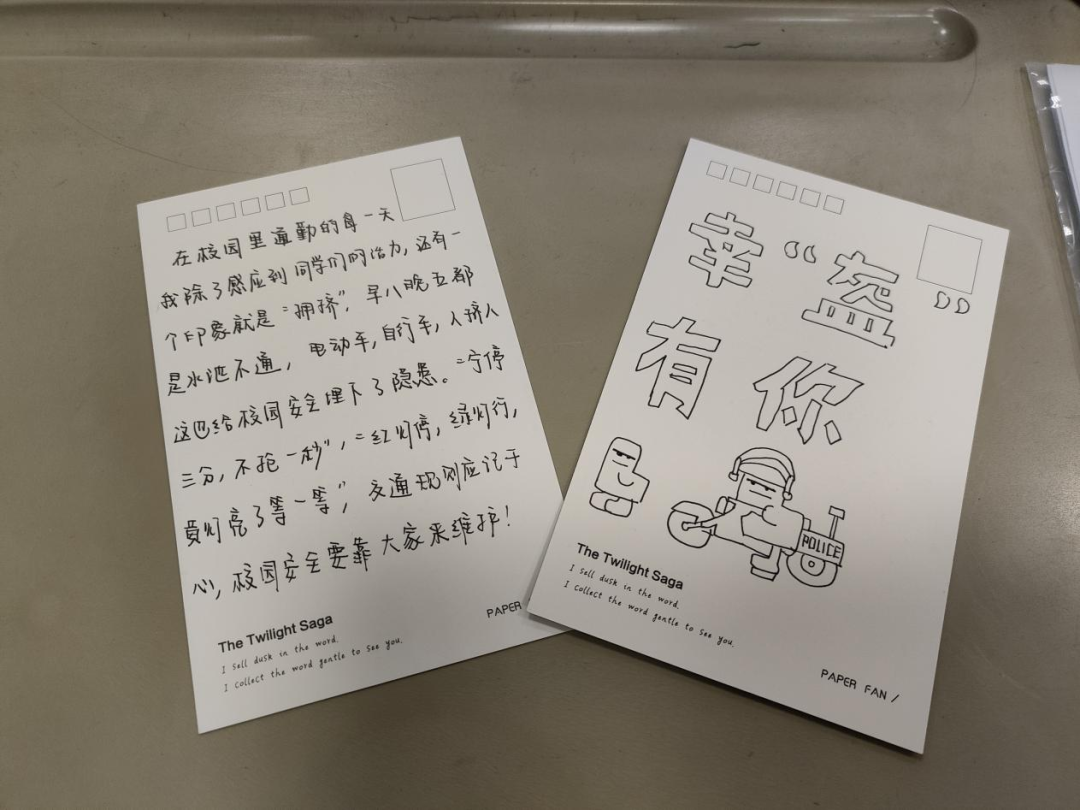 在校园里通勤的每一天
我除了感应到同学们的活力,还有一
个印象就是“拥挤”,早八晚五都
是水泄不通,电动车,自行车,人挤人
这也给校园安全埋下了隐患。“宁停
三分,不抢一秒”,“红灯停,绿灯行,
黄灯亮了等一等”,交通规则应记于
心,校园安全要靠大家来维护!
The Twilight Saga
I Sell dusk in the word.
I Collect the word gentle to see you.
PAPER
幸“盔”
有你
POLICE
The Twilight Saga
I Sell dusk in the word.
I Collect the word gentle to see you.
PAPER FAN /